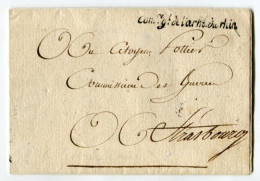 Com.re gl de l'armée du rhin
Au Citoyen Pottier
Commissaire des Guerres
A Strasbourg